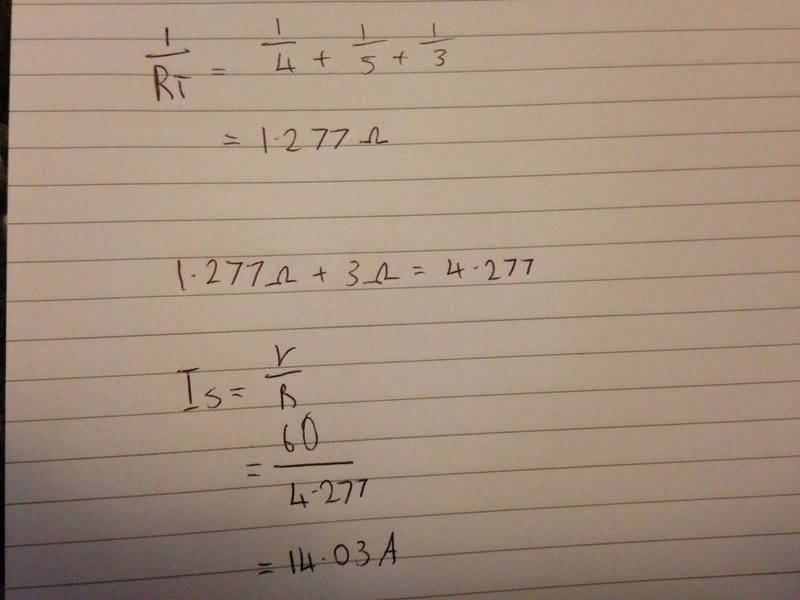 1/RT = 1/4 + 1/5 + 1/3
= 1.277Ω
1.277Ω + 3Ω = 4.277
Is = V/R
= 60/4.277
= 14.03A